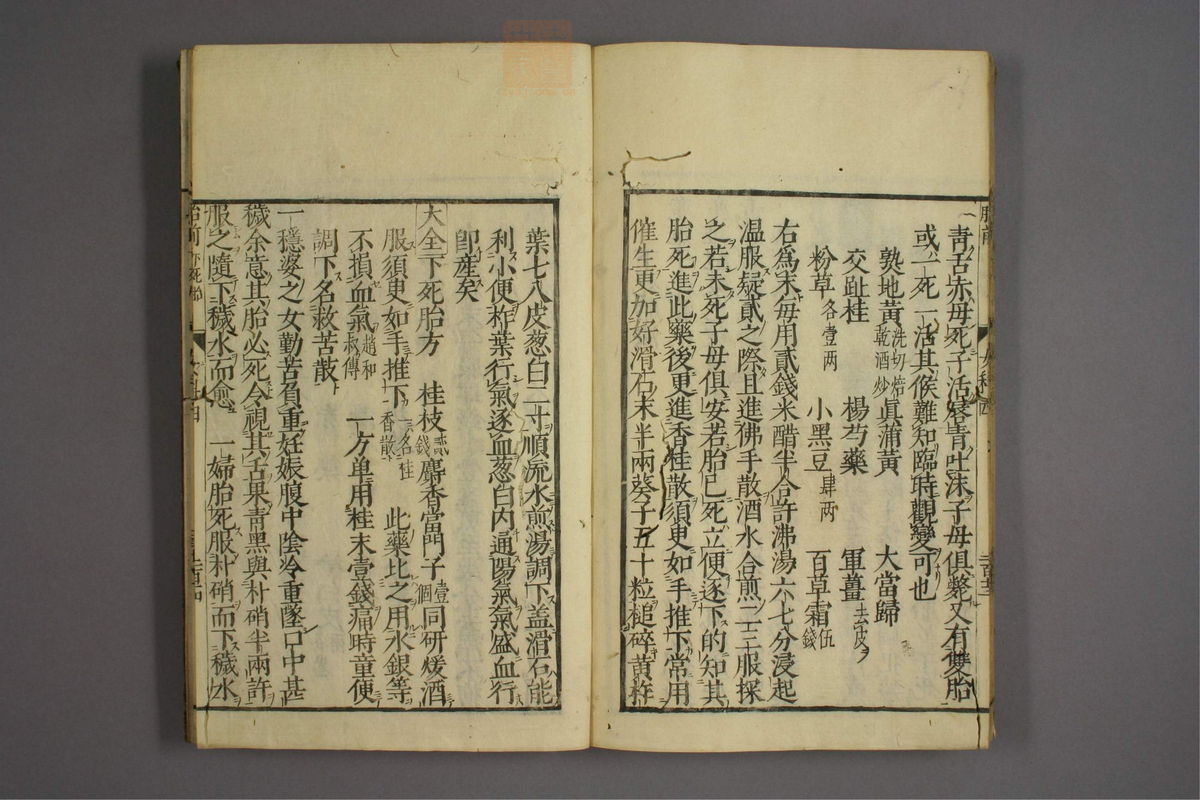 青舌赤母死子活唇青吐沫子母俱斃又有雙胎
或一死一活其候難知臨時觀變可也
熟地黃洗切焙乾酒炒 眞蒲黃 大當歸
交趾桂 楊芍藥 軍薑去皮
粉草各壹两 小黑豆肆两 百草霜伍錢
右爲末每用貳錢米醋半合許沸湯六七分浸起
温服疑貳之際且進佛手散酒水合煎二三服探
之若未死子母俱安若胎已死立便逐下的知其
胎死進此藥後更進香桂散須臾如手推下常用
催生更加好滑石末半兩葵子五十粒槌碎黄柞
葉七八皮葱白二寸順流水煎湯調下盖滑石能
利小便柞葉行氣逐血葱白内通陽氣氣盛血行
卽産矣
大全下死胎方 桂枝貳錢 麝香當門子壹個 同研煖酒
服須臾如手推下一名桂香散 此藥比之用水銀等
不損血氣趙和叔傳 一方单用桂末壹錢痛時童便
調下名救苦散
一穩婆之女勤苦負重妊娠腹中陰冷重墜口中甚
穢余意其胎必死令視其舌果青黑與朴硝半兩許
服之隨下穢水而愈 一婦胎死服朴硝而下穢水